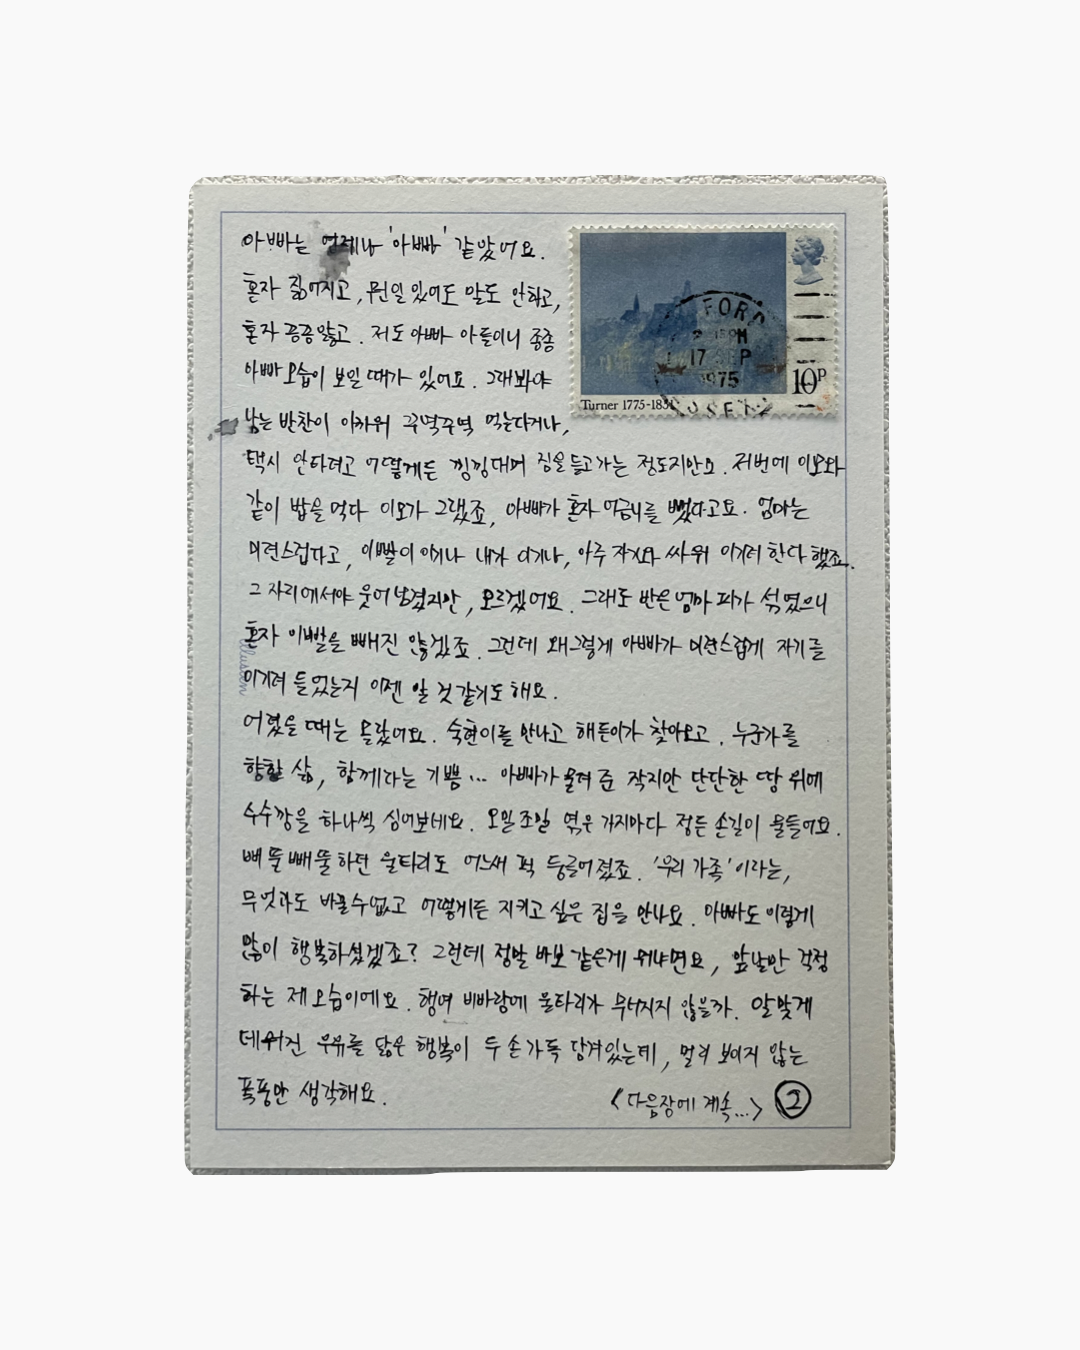 아빠는 언제나 '아빠' 같았어요.
혼자 짊어지고, 뭔일 있어도 말도 안하고,
혼자 끙끙앓고. 저도 아빠 아들이니 종종
아빠 모습이 보일 때가 있어요. 그래봐야
남는 반찬이 아까워 꾸역꾸역 먹는다거나,
택시 안타려고 어떻게든 낑낑대며 짐을 들고가는 정도지만요. 저번에 이모와
같이 밥을 먹다 이모가 그랬죠, 아빠가 혼자 어금니를 뺐다고요. 엄마는
미련스럽다고, 이빨이 이기나 내가 이기나, 아주 자기와 싸워 이기려 한다 했죠.
그 자리에서야 웃어넘겼지만, 모르겠어요. 그래도 반은 엄마 피가 섞였으니
혼자 이빨을 빼진 않겠죠. 그런데 왜그렇게 아빠가 미련스럽게 자기를
이기려 들었는지 이젠 알 것 같기도 해요.
어렸을 때는 몰랐어요. 숙현이를 만나고 해든이가 찾아오고. 누군가를
향할 삶, 함께라는 기쁨... 아빠가 물려 준 작지만 단단한 땅 위에
수수깡을 하나씩 심어보네요. 오밀조밀 엮은 가지마다 정든 손길이 물들어요.
삐뚤빼뚤하던 울타리도 어느새 퍽 둥글어졌죠. '우리 가족'이라는,
무엇과도 바꿀수없고 어떻게든 지키고 싶은 집을 만나요. 아빠도 이렇게
많이 행복하셨겠죠? 그런데 정말 바보 같은게 뭐냐면요, 앞날만 걱정
하는 제 모습이에요. 행여 비바람에 울타리가 무너지지 않을까. 알맞게
데워진 우유를 닮은 행복이 두 손 가득 담겨있는데, 멀리 보이지 않는
폭풍만 생각해요.
<다음장에 계속...> ②
FORD
17 SEP
1975
10P
Turner 1775-1851